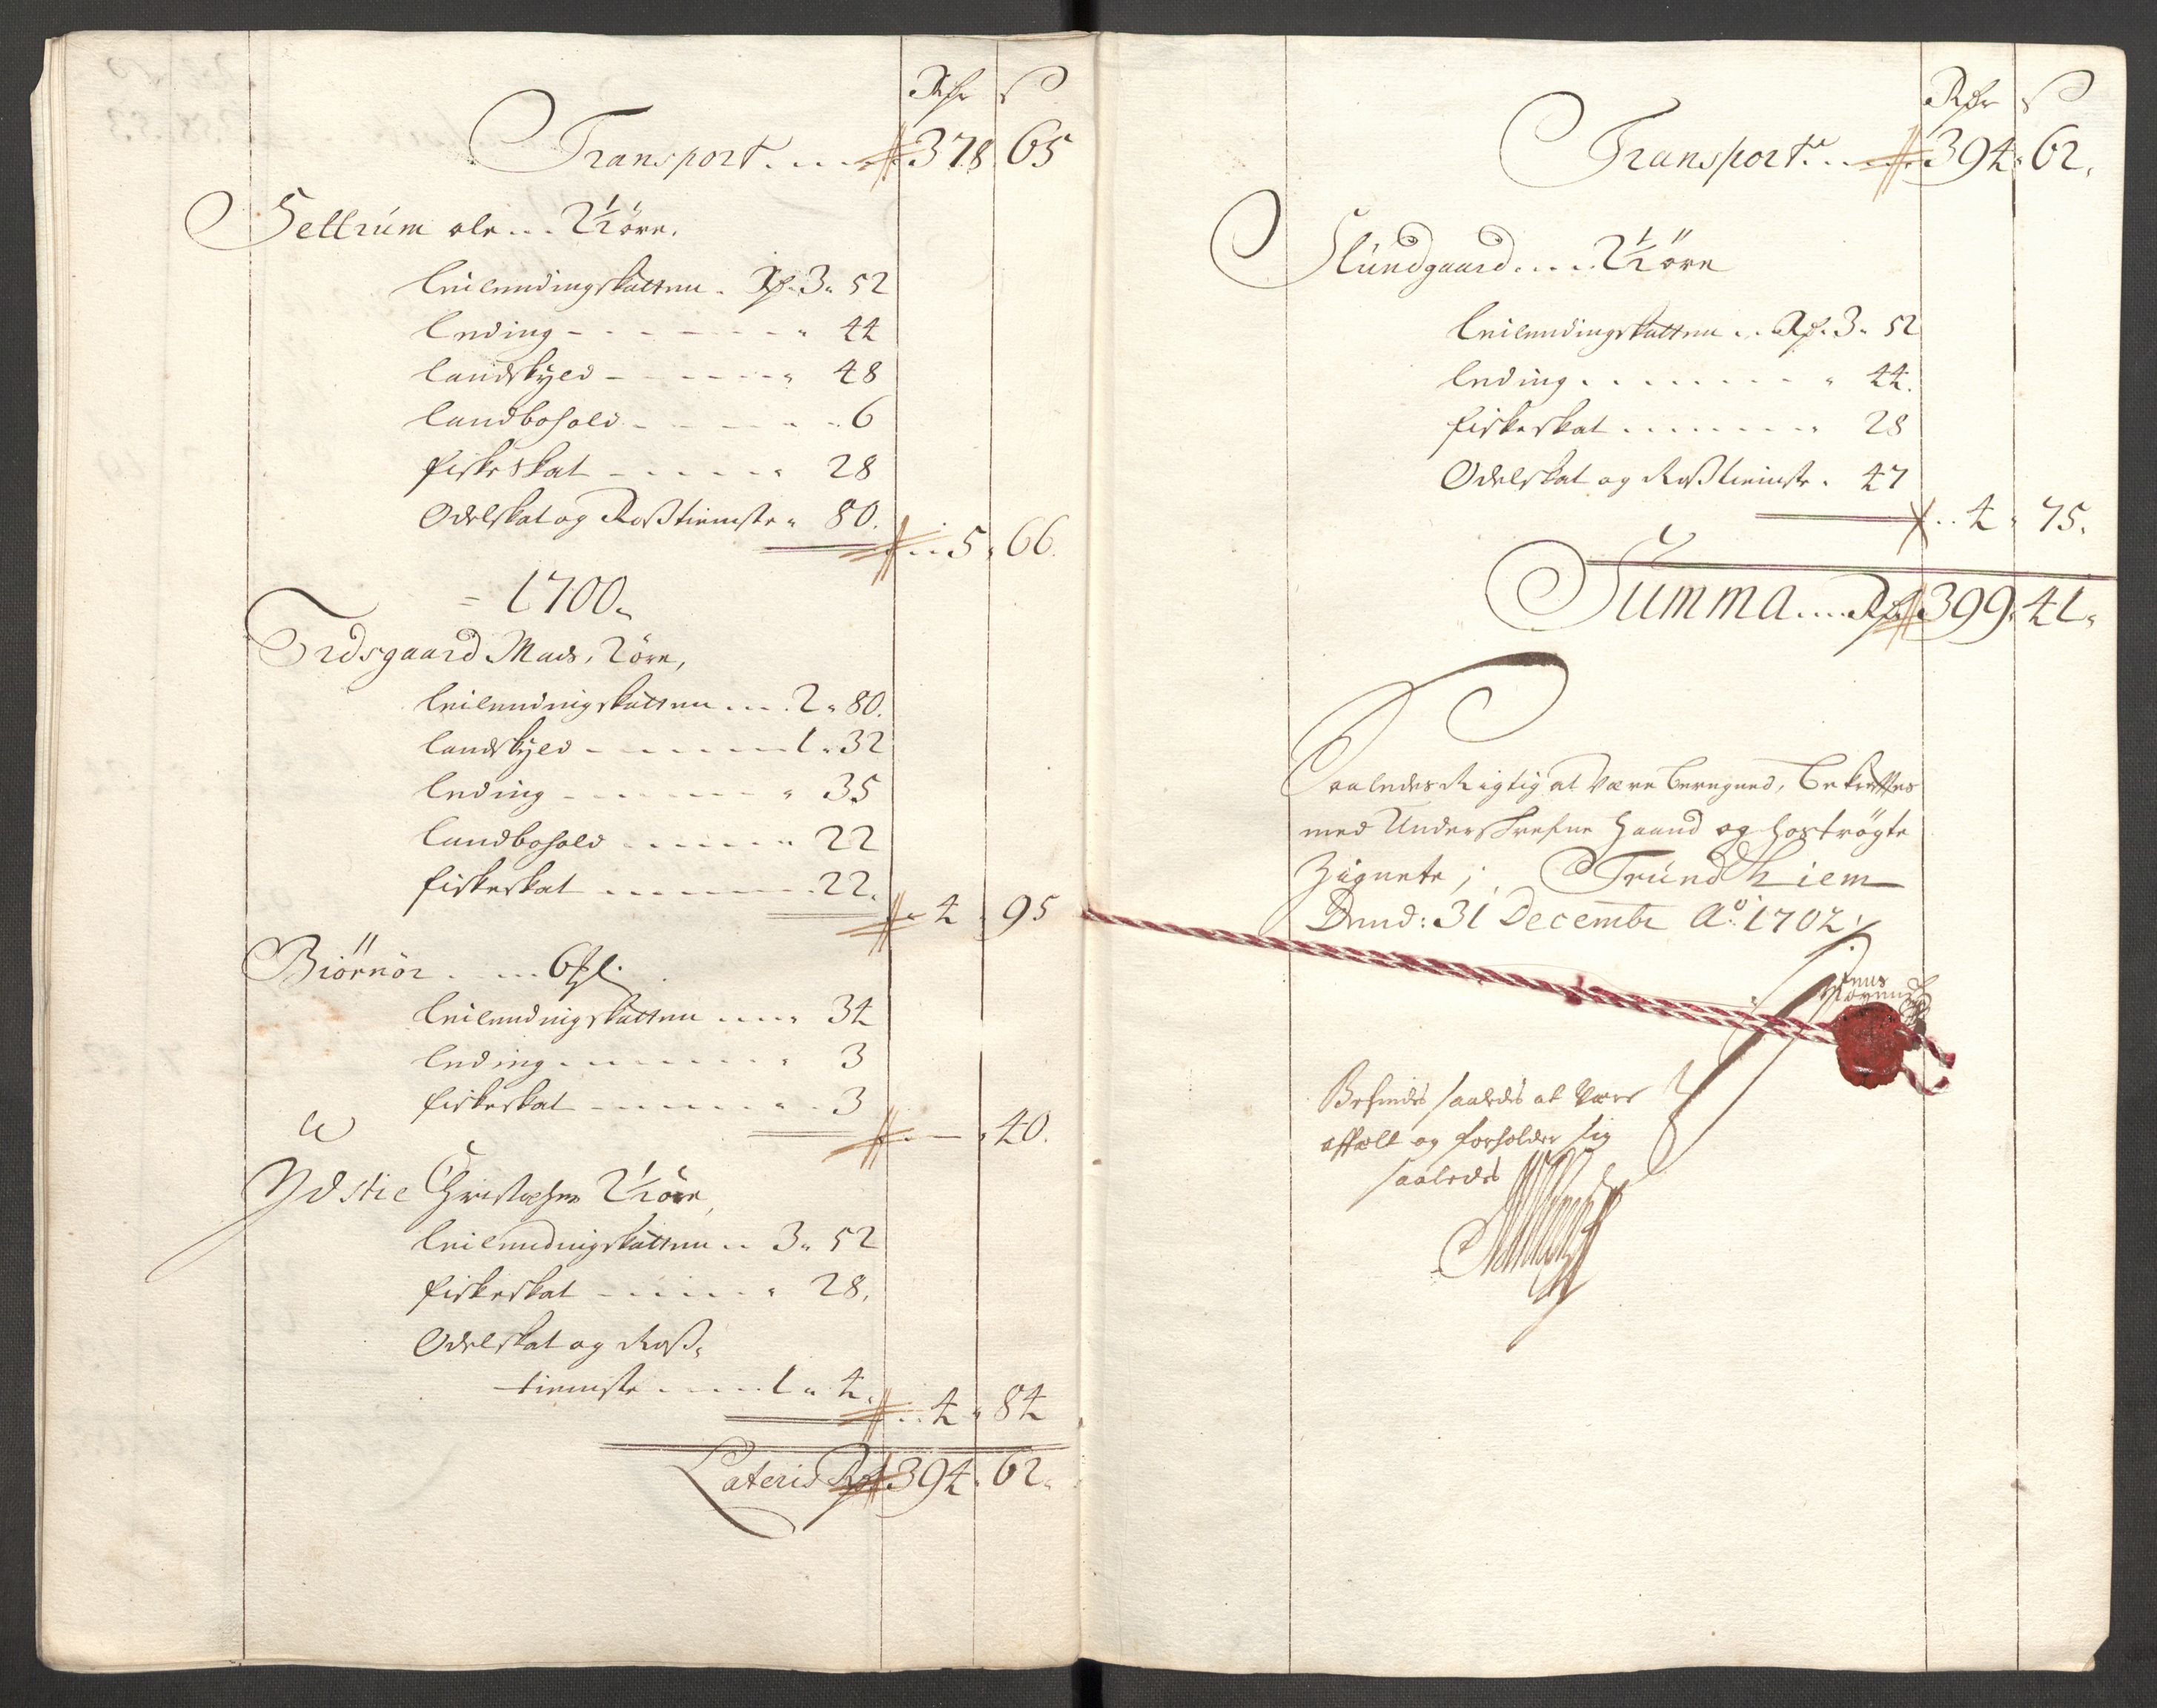 Rdr ß
Transport . . . . 378 65
Sellrum ole . . . 2½ öre.
Leilendingskatten . Rd. 3 " 52
Leding - - - - - - - " 44
Landskyld - - - - - - " 48
Landbohold - - - - - - 6
Fiskeskat - - - - - " 28
Odelskat og Rosstieniste " 80.
. . 5 " 66.
= 1700 "
Mads, 2 öre,
Leilendingskatten . . . . 2 " 80.
Landskyld - - - - - - 1 " 32
Leding - - - - - - " 35
Landbohold . . . . . . " 22
Fiskeskat . . . . . . . 22.
4 " 95
Biörnör . . . . . 6
Leilendingskatten . . . . " 34
Leding . - - - - - - " 3
Fiskeskat - - - - - " - 3
. - " 40.
Ydstie Christopher 2½ öre,
Leilendingskatten . . 3 " 52
Fiskeskat - - - - - " 28,
Odelskat og Ross-
tieniste . . . . . 1 " 4.
. . 4 " 84
Lateris Rdr 394 " 62 "
Rdr ß
Transport . . . . 394 " 62 "
Slundgaard . . . . 2½ öre
Leilendingskatten . . Rd. 3 " 52
Leding . . . . . . . . " 44.
Fiskeskat . . . . . . . " 28
Odelskat og Rosstieniste . 47
. . 4 " 75.
Summa . . . . Rdr 399 " 41 "
Saaledes Rigtig at være beregned, bekreftes
med Underskrefne haand og hoströgte
Zignete; Trundhiem
Dend: 31 Decembr Ao: 1702 ./.
Befindes saaledes at være
og forholder sig
saaledes